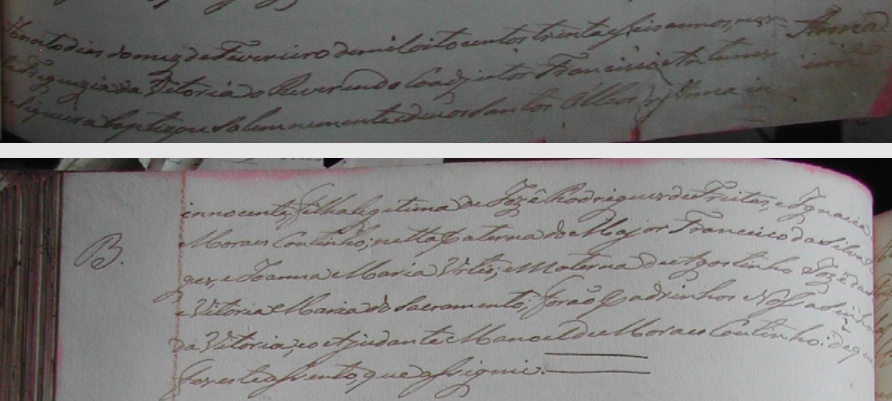 dias do mez de Fevereiro de mil oito centos trinta e seis annos, nesta Anna
Freguezia da Vitoria o Reverendo Coadjutor Francisco Antunes
Siqueira baptizou solemnemente e deu os Santos Oleos á Anna in
innocente, filha legitima de Jozê Rodrigues de Freitas, e Ignacia
Moraes Coutinho; netta paterna do Major Francisco da Silva
B.
ges, e Joanna Maria ; e Materna de Agostinho Jozê da
e Vitoria Maria do Sacramento; forão Padrinhos Nossa Senhora
da Vitoria, e o Ajudante Manoel de Moraes Coutinho: de que
fiz este assento, que assignei.